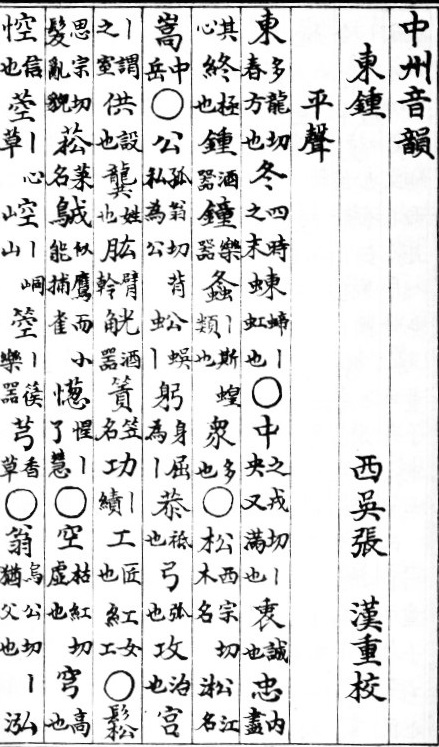 中州音韻
東鍾 西吳張 漢重校
平聲
東多龍切春方也冬四時之末蝀螮丨虹也〇中之戎切丨央又滿也衷誠也忠內盡
其心終極也鍾酒器鐘樂器螽丨斯蝗類也衆多也〇松西宗切木名淞江名
嵩中岳〇公孤翁切背私為公蚣蜈丨躬身屈為丨恭祗也弓弧也攻治也宮
丨謂之室供設也龔姓也肱臂幹觥酒器篢笠名功丨績工匠也紅女工〇鬆
思宗切髮亂貌菘菜名似鷹而小能捕雀惺丨了慧〇空枯紅切虛也穹高也
悾信也丨心草崆丨峒山箜丨篌樂器芎香草〇翁烏公切丨猶父也泓